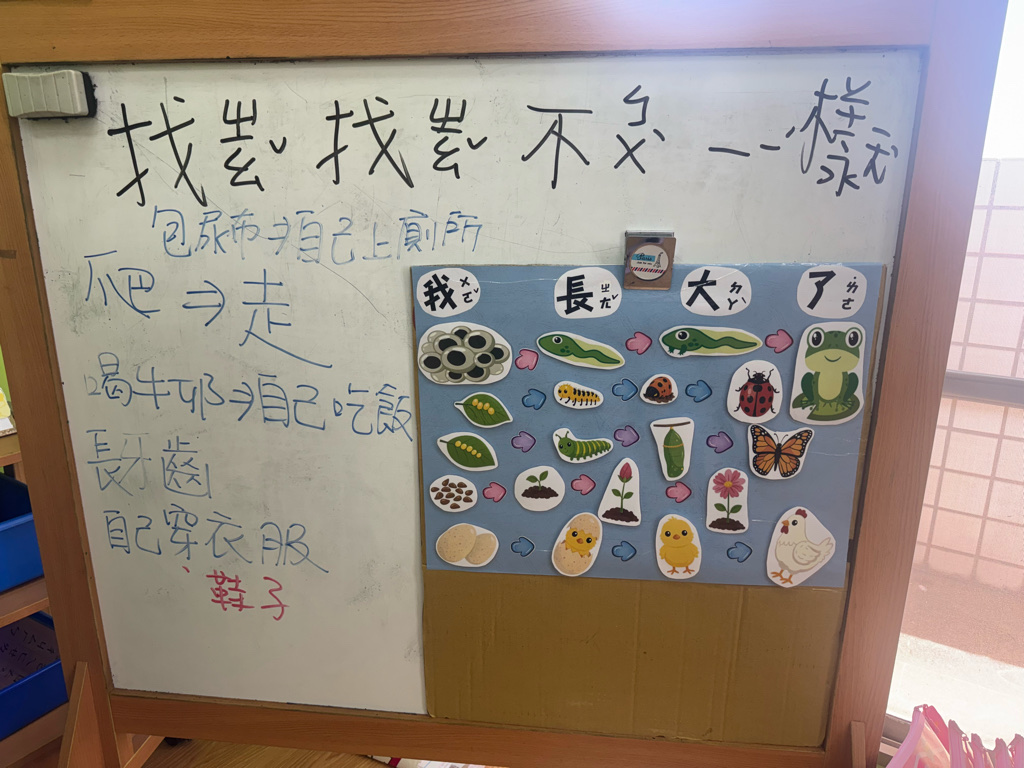 找ㄓㄠˇ找ㄓㄠˇ不ㄅㄨˋ一ㄧˊ樣ㄧㄤˋ
包尿布⇒自己上廁所
爬⇒走
喝牛奶⇒自己吃飯
長牙齒
自己穿衣服
、鞋子
我ㄨㄛˇ長ㄓㄤˇ大ㄉㄚˋ了ㄌㄜ˙